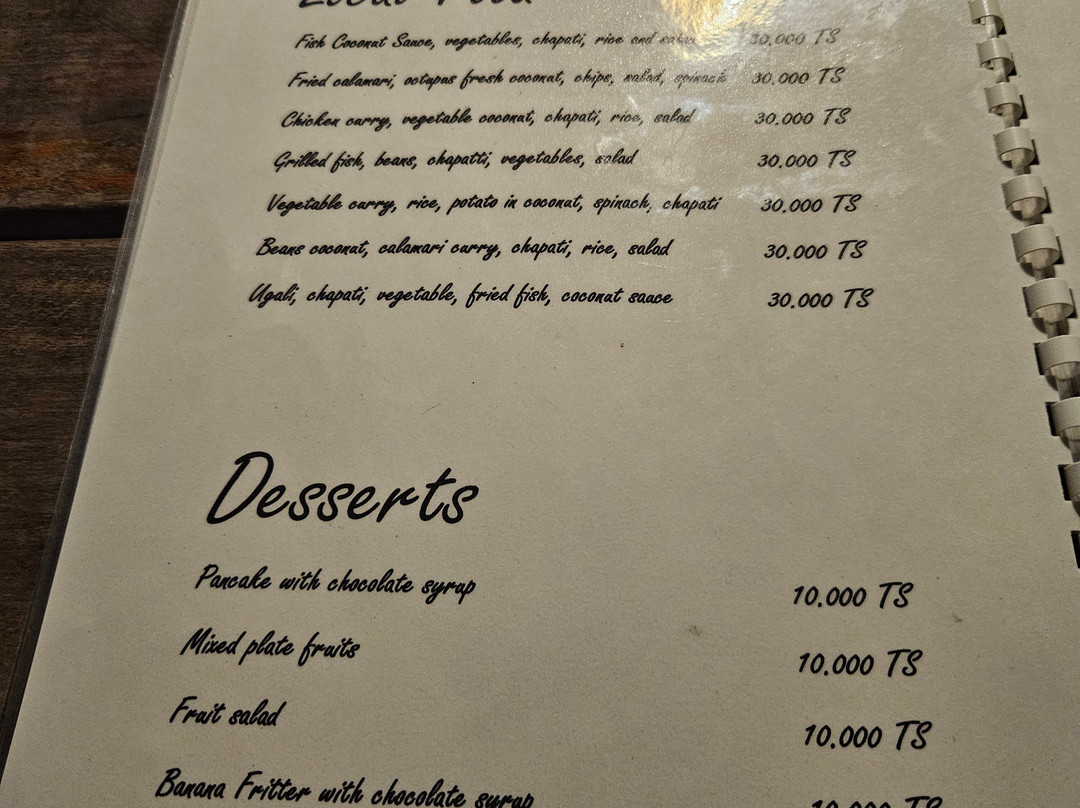 Local Food
Fish Coconut Sauce, vegetables, chapati, rice and salad 30.000 TS
Fried calamari, octupus fresh coconut, chips, salad, spinach 30.000 TS
Chicken curry, vegetable coconut, chapati, rice, salad 30.000 TS
Grilled fish, beans, chapatti, vegetables, salad 30.000 TS
Vegetable curry, rice, potato in coconut, spinach, chapati 30.000 TS
Beans coconut, calamari curry, chapati, rice, salad 30.000 TS
Ugali, chapati, vegetable, fried fish, coconut sauce 30.000 TS
Desserts
Pancake with chocolate syrup 10.000 TS
Mixed plate fruits 10.000 TS
Fruit salad 10.000 TS
Banana Fritter with chocolate syrup 10.000 TS